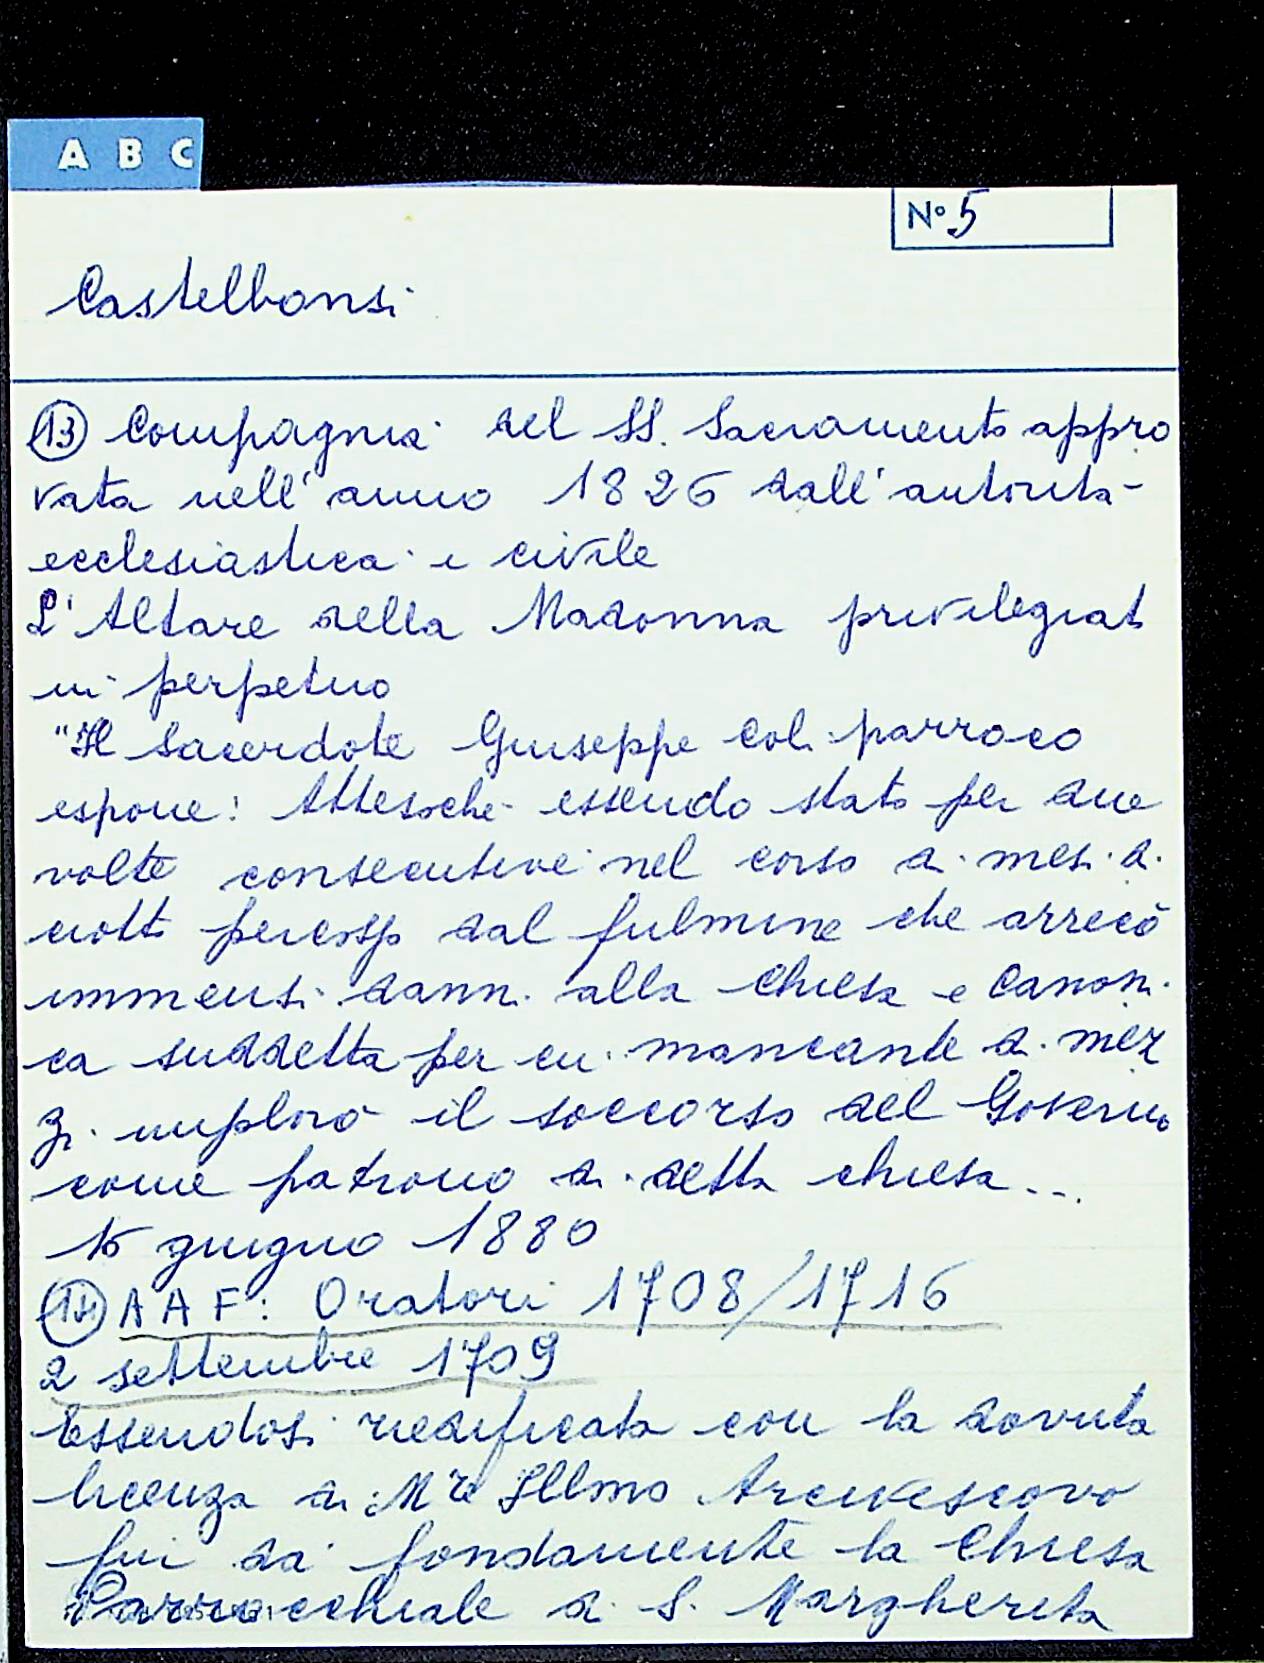 A B C
N° 5
Castelbonsi
(13) Compagnia del SS. Sacramento appro
vata nell'anno 1826 dall'autorità
ecclesiastica e civile
L'Altare della Madonna privilegiat
in perpetuo
"Il Sacerdote Giuseppe Coli parroco
espone: Attesoché essendo stato per due
volte consecutive nel corso di mesi di
ciotto percosso dal fulmine che arrecò
immensi danni alla Chiesa e Canoni
ca suddetta per cui mancante di mez
zi implorò il soccorso del Governo
come patrono di detta chiesa...
15 giugno 1880
(14) AAF: Oratori 1708/1716
2 settembre 1709
Essendosi riedificata con la dovuta
licenza di M're Illmo Arcivescovo
fin da fondamente la Chiesa
Parrocchiale di S. Margherita